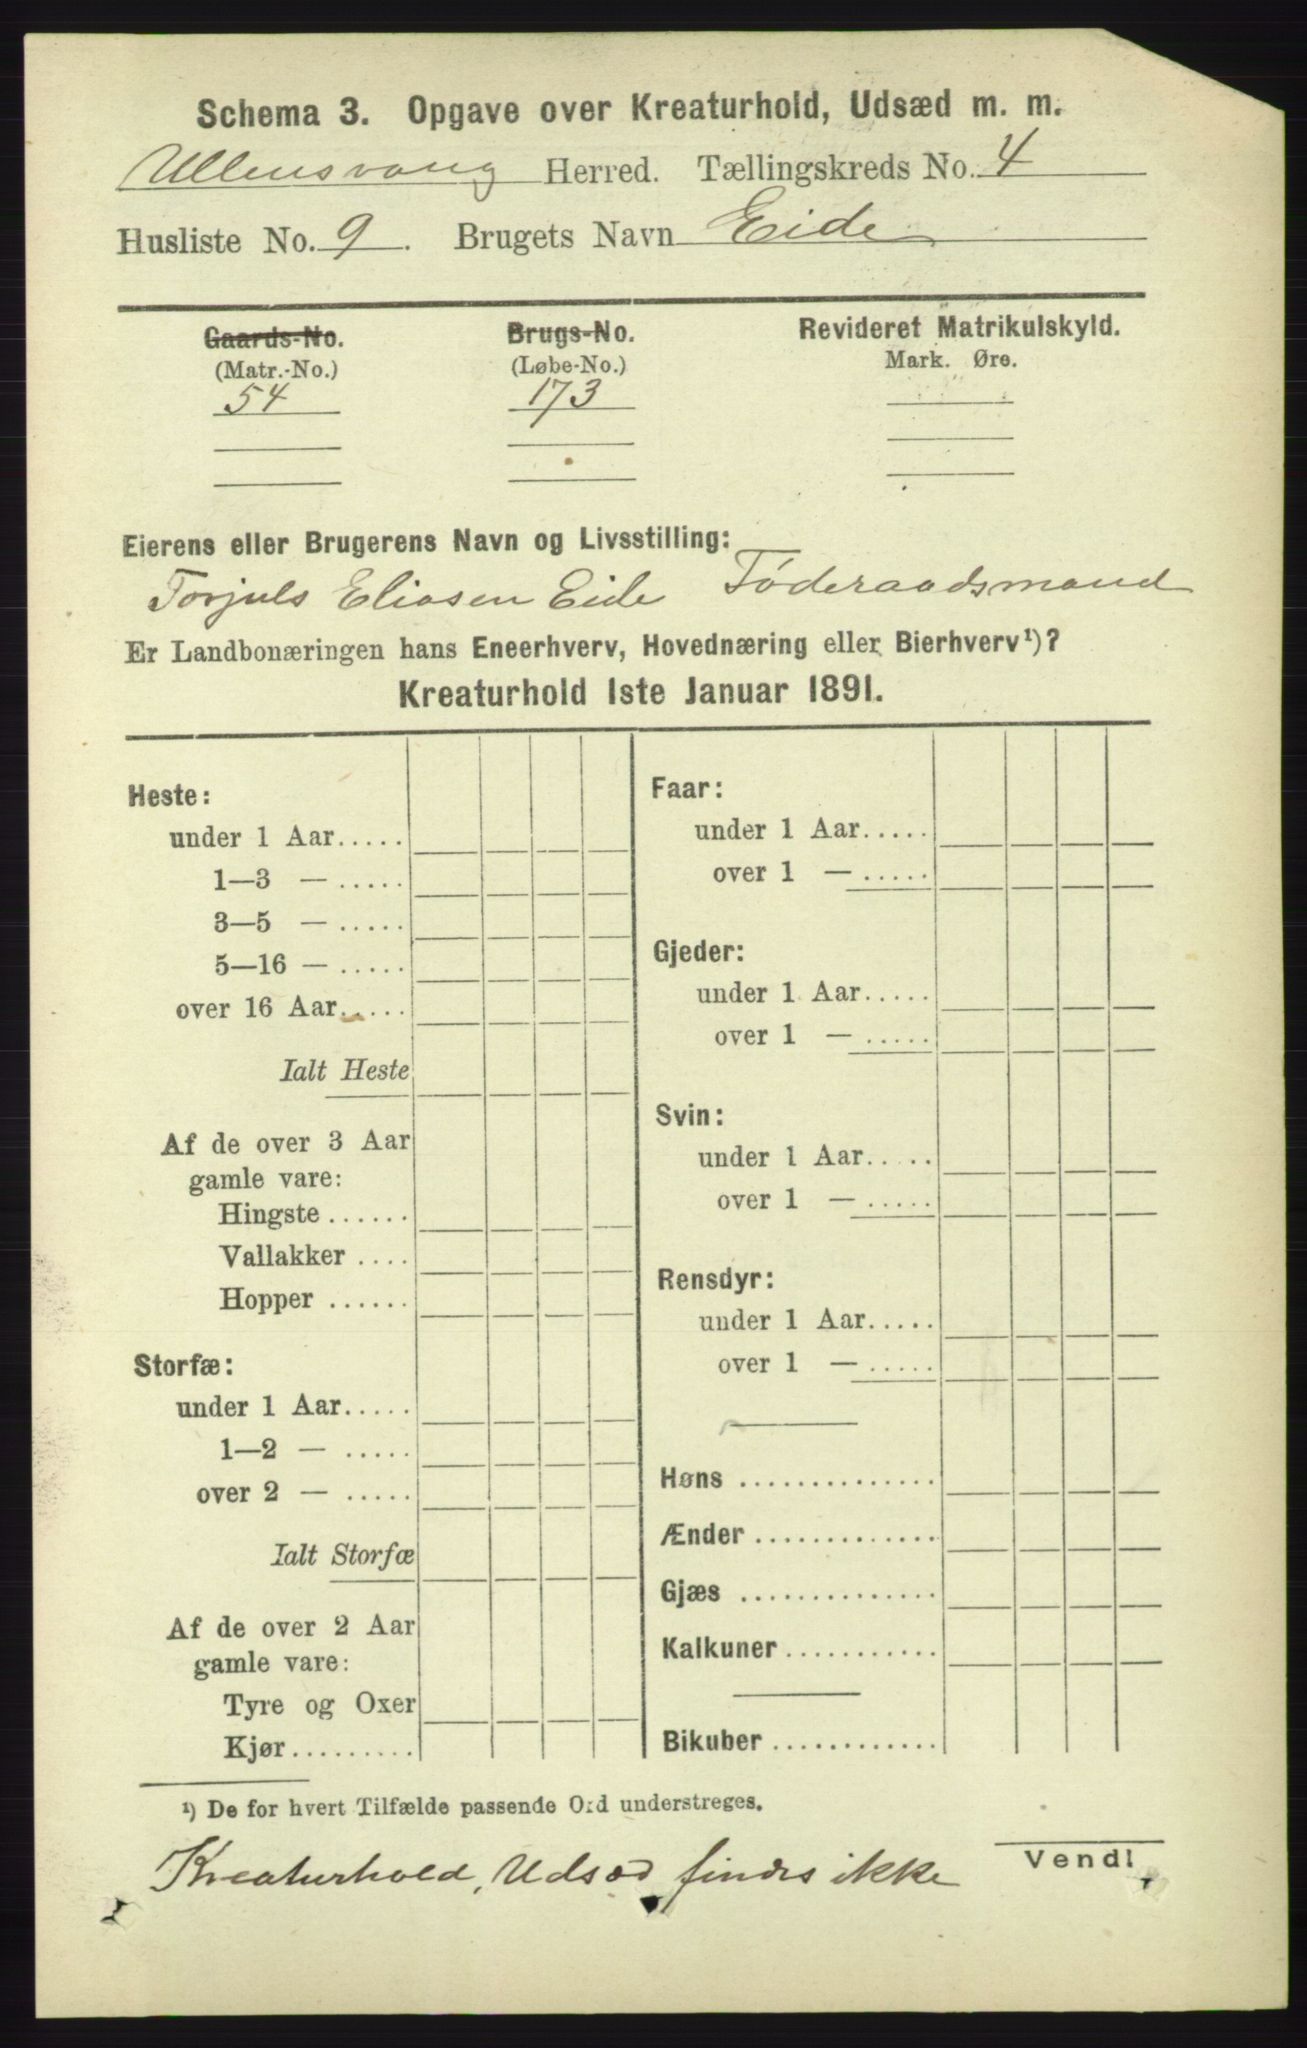 Schema 3. Opgave over Kreaturhold, Udsæd m. m.
Ullensvang Herred. Tællingskreds No. 4
Husliste No. 9. Brugets Navn Eide
Gaards-No. Brugs-No. Revideret Matrikulskyld.
(Matr.-No.) (Løbe-No.) Mark. Øre.
54 173
Eierens eller Brugerens Navn og Livsstilling:
Torjuls Eliasen Eide Föderaadsmand
Er Landbonæringen hans Eneerhverv, Hovednæring eller Bierhverv¹)?
Kreaturhold 1ste Januar 1891.
Heste:
under 1 Aar.....
1—3 — .....
3—5 — .....
5—16 — .....
over 16 Aar.....
Ialt Heste
Af de over 3 Aar
gamle vare:
Hingste ......
Vallakker ....
Hopper ......
Storfæ:
under 1 Aar.....
1—2 — .....
over 2 — .....
Ialt Storfæ
Af de over 2 Aar
gamle vare:
Tyre og Oxer
Kjør.........
Faar:
under 1 Aar.....
over 1 — .....
Gjeder:
under 1 Aar.....
over 1 — .....
Svin:
under 1 Aar.....
over 1 — .....
Rensdyr:
under 1 Aar.....
over 1 — .....
Høns ..............
Ænder .............
Gjæs ..............
Kalkuner...........
Bikuber ............
¹) De for hvert Tilfælde passende Ord understreges.
Vend!
Kreaturhold, Udsæd findes ikke